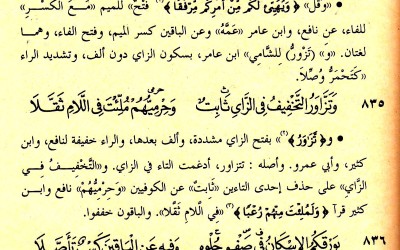 «وقل» ﴿ وَيُهَيِّئْ لَكُم مِّنْ أَمْرِكُم مِّرْفَقًا ﴾(١) فتح» للميم «مَعَ الكَسْرِ»
للفاء، عن نافع، وابن عامر «عَمَّهُ» وعن الباقين كسر الميم، وفتح الفاء، وهما
لغتان. «و» (تَزْوَرُّ) لِلشَّامِي» ابن عامر، بسكون الزاي دون ألف، وتشديد الراء
«كَتَحْمَرُّ وُصِّلَا».
٨٣٥ وَتَزَّاوَرُ التَّخْفِيفُ فِي الزَّايِ ثَابِتٌ وَحِرْمِيُّهُمْ مُلِّئْتَ فِي اللَّامِ ثَقَّلَا
• «و﴿ تَزَّاوَرُ ﴾(٢)» بفتح الزاي مشددة، وألف بعدها، والراء خفيفة لنافع، وابن
كثير، وأبي عمرو. وأصله : تتزاور، أدغمت التاء في الزاي. و«التَّخْفِيفُ فِي
الزَّايِ» على حذف إحدى التاءين «ثَابِتٌ» عن الكوفيين «وَحِرْمِيُّهُمْ» نافع وابن
كثير قرآ ﴿ وَلَمُلِّئْتَ مِنْهُمْ رُعْبًا ﴾(٣) «فِي اللَّامِ ثَقَّلَا». والباقون خففوا.
٨٣٦ بِوَرْقِكُمُ الإِسْكَانُ فِي صَفْوِ حُلْوِهِ وَفِيهِ عَنِ الْبَاقِينَ كَسْرٌ تَأَصَّلَا